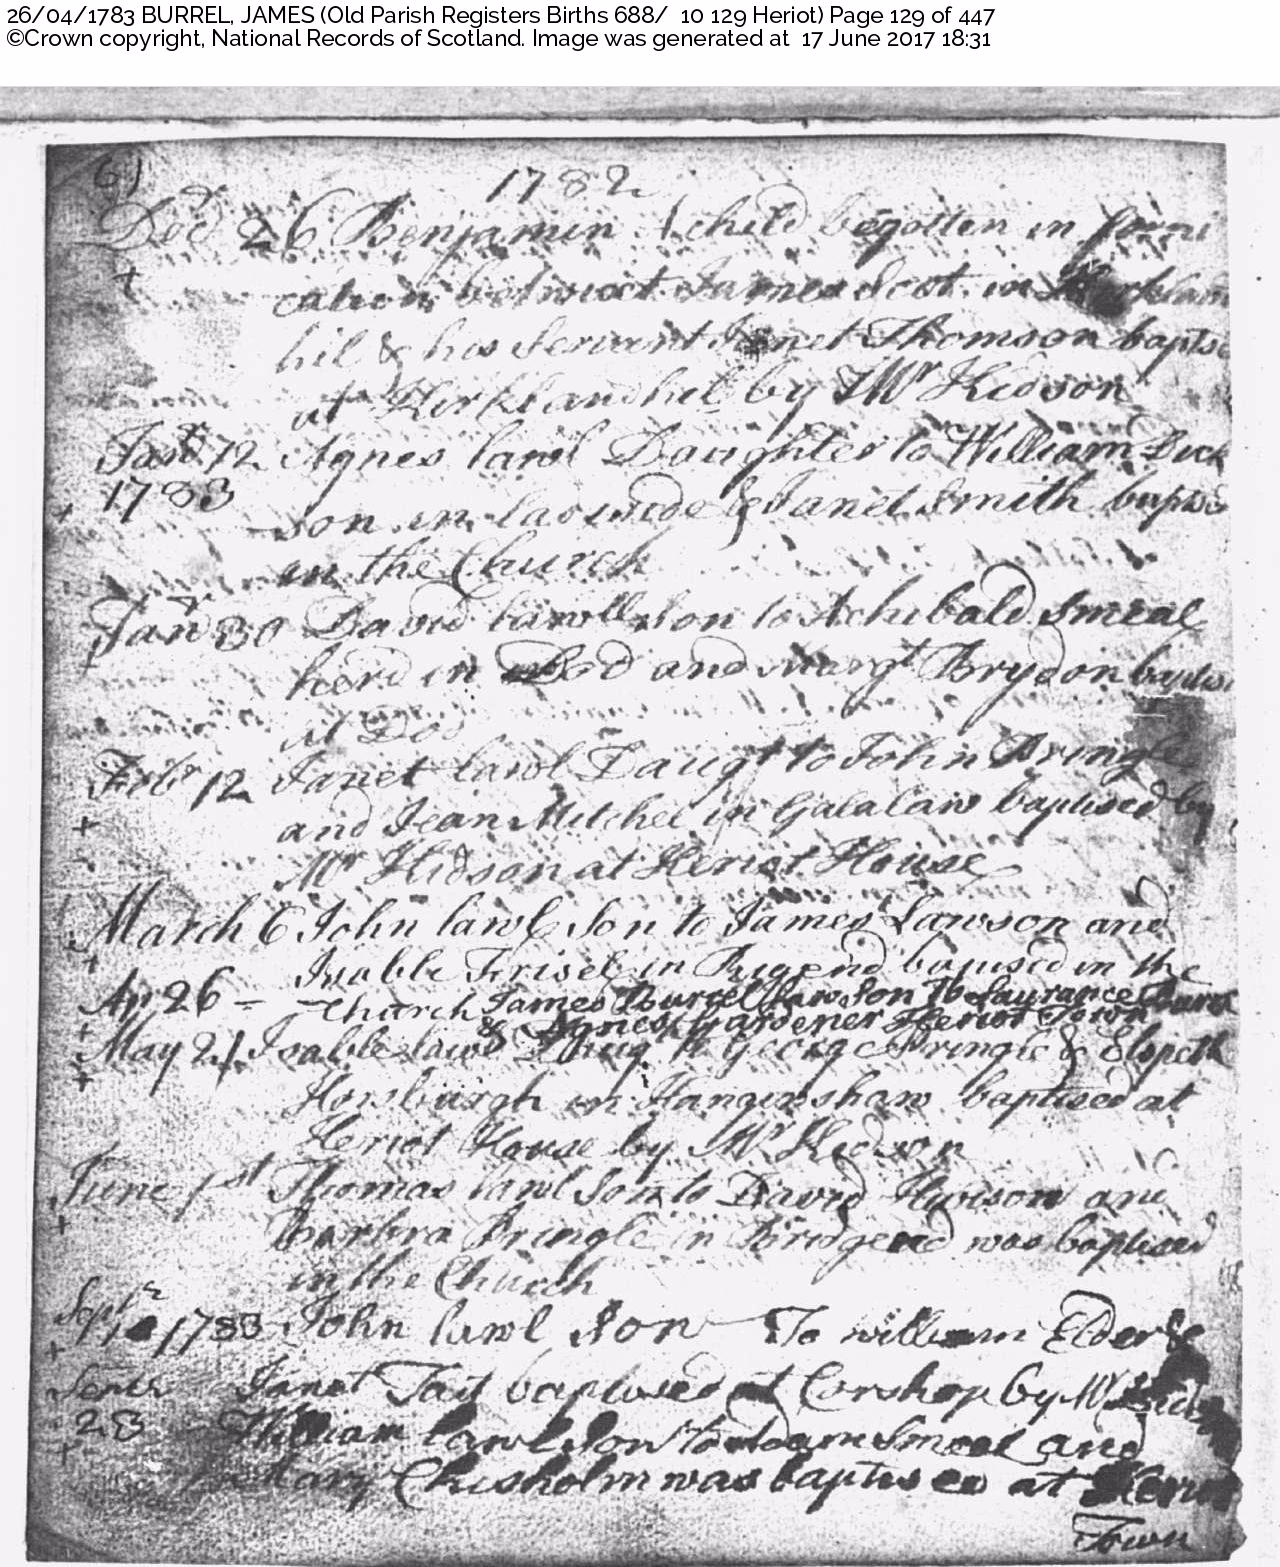 26/04/1783 BURREL, JAMES (Old Parish Registers Births 688/ 10 129 Heriot) Page 129 of 447
©Crown copyright, National Records of Scotland. Image was generated at 17 June 2017 18:31
1782
26 Benjamin A child begotten in forni
cation betwixt James Scot in
hil & his Servant Janet Thomson
at Kirklandhil by Mr Kidson
Janr 12 Agnes lawl Daughter to William Dick
1783
son in & Janet Smith
in the Church
Janr 30 David lawll Son to Achibald Smeal
herd in and Margt Brydon
at
Febr 12 Janet lawl Daugt to John Pringle
and Jean Mitchel in Galalaw baptised by
Mr Kidson at Heriot House
March 6 John lawl Son to James Lawson and
Isable in baptised in the
Ap 26 - Church James Burrel law Son To Laurance
& Agnes Gardener Heriot Town
May 21 Isable lawl Daug to George Pringle & Elspeth
Horsburgh in Hangenshaw baptised at
Heriot House by Mr Kidson
June 1st Thomas lawl Son to David and
Barbra Pringle in Bridgend was baptised
in the Church
Septr
1783 John lawl Son To William Elder &
Janet Tait baptised at Corshop by Mr
28 William lawl Son to Adam Smeal and
Mary Chisholm was baptised at Heriot
Town